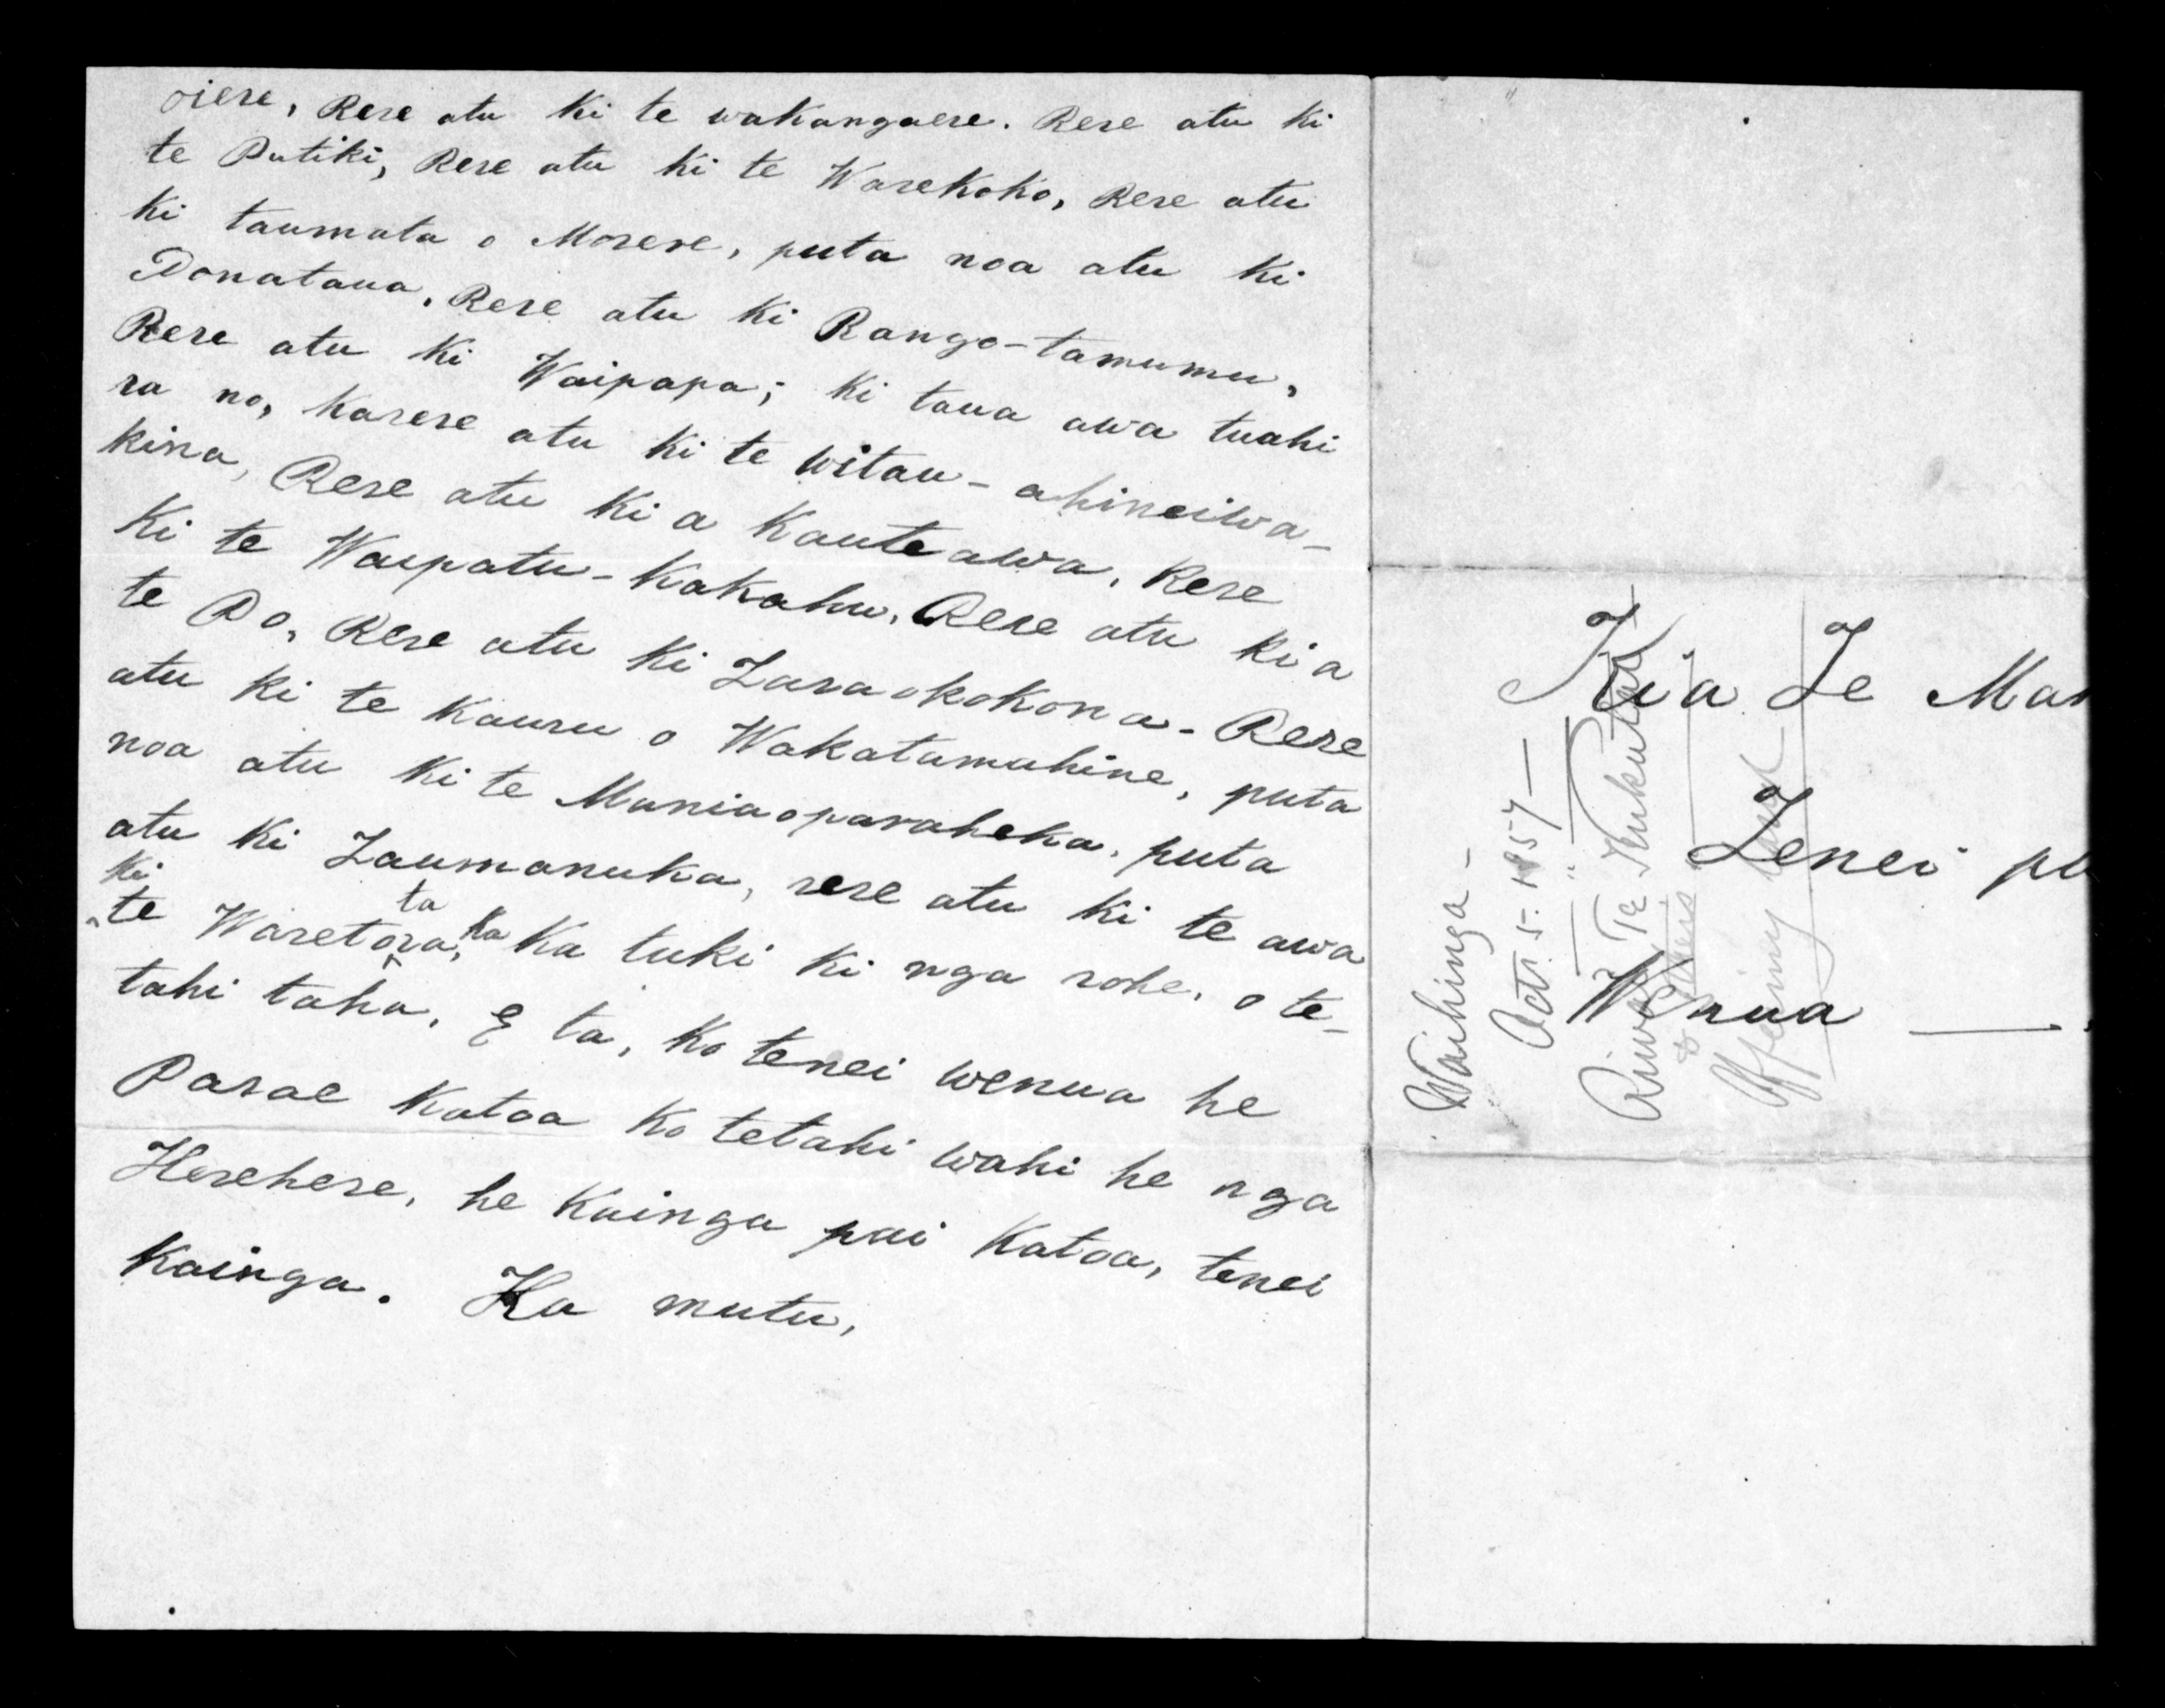 oiere, Rere atu ki te wakangaere. Rere atu ki
te Putiki, Rere atu ki te Warekoko, Rere atu
ki taumata o Morere, puta noa atu ki
Ponataua, Rere atu ki Rango-tamumu,
Rere atu ki Waipapa; ki taua awa tuahi
ra no, Karere atu ki te Witau-ahineiwa-
kina, Rere atu ki a Kauteawa, Rere
Ki te Waipatu-Kakahu, Rere atu ki a
te Po, Rere atu ki Taraokokona - Rere
atu ki te Kauru o Wakatamahine, puta
noa atu ki te Maniaoparaheka, puta
atu ki Taumanuka, rere atu ki te awa
ki te Waretotara, ka Ka tuki ki nga rohe, o te-
tahi taha, E ta, Ko tenei wenua he
Parae Katoa Ko tetahi wahi he nga
Herehere, he Kainga pai Katoa, tenei
Kainga. Ka mutu,
Kia Te Ma
Tenei pu
Wenua —
Waihinga -
Oct. 5. 1857 —
Te Kukutai
Offering land